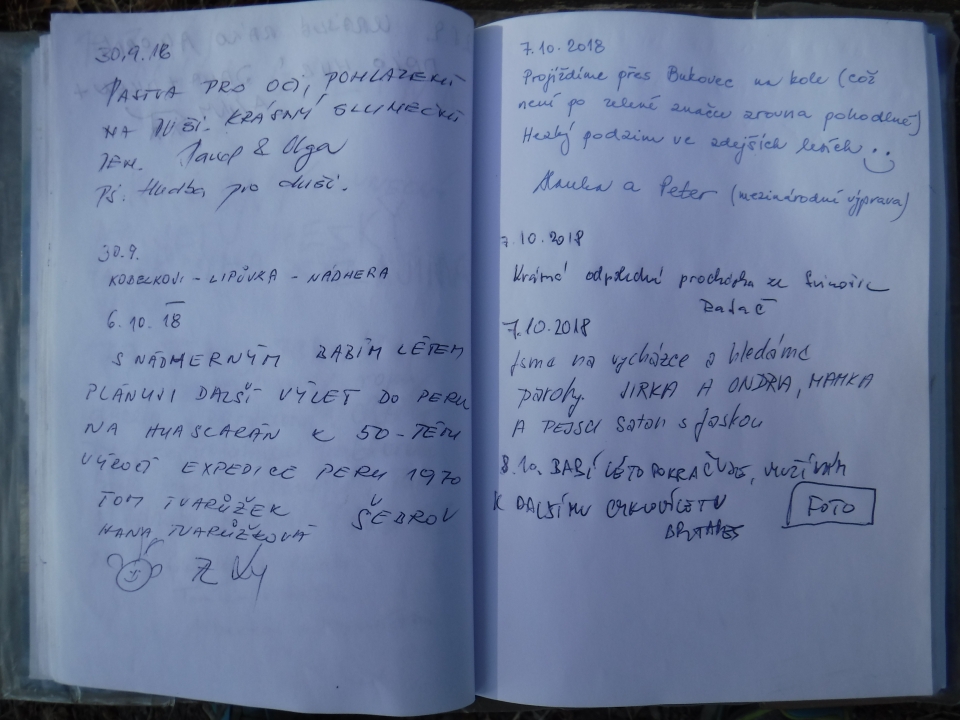 30.9.18
PASTVA PRO OČI, POHLAZENÍ
NA DUŠI. KRÁSNÝ SLUNEČNÍ
DEN. Pavel & Olga
PS: Hudba pro duši.
30.9.
KODELKOVI - LIPŮVKA - NÁDHERA
6.10.18
S NÁDHERNÝM BABÍM LÉTEM
PLÁNUJI DALŠÍ VÝLET DO PERU
NA HUASCARÁN K 50-TÉMU
VÝROČÍ EXPEDICE PERU 1970
TOM TVARŮŽEK ŠEBROV
HANA TVARŮŽKOVÁ
7.10.2018
Projíždíme přes Bukovec na kole (což
není po zelené značce zrovna pohodlné)
Hezký podzim ve zdejších lesích
Hanka a Peter (mezinárodní výprava)
7.10.2018
Krásná odpolední procházka ze
7.10.2018
Jsme na vycházce a hledáme
parohy. JIRKA A ONDRA, MAMKA
A PEJSCI Satan s Jaskou
8.10. BABÍ LÉTO POKRAČUJE,
K DALŠÍMU
FOTO